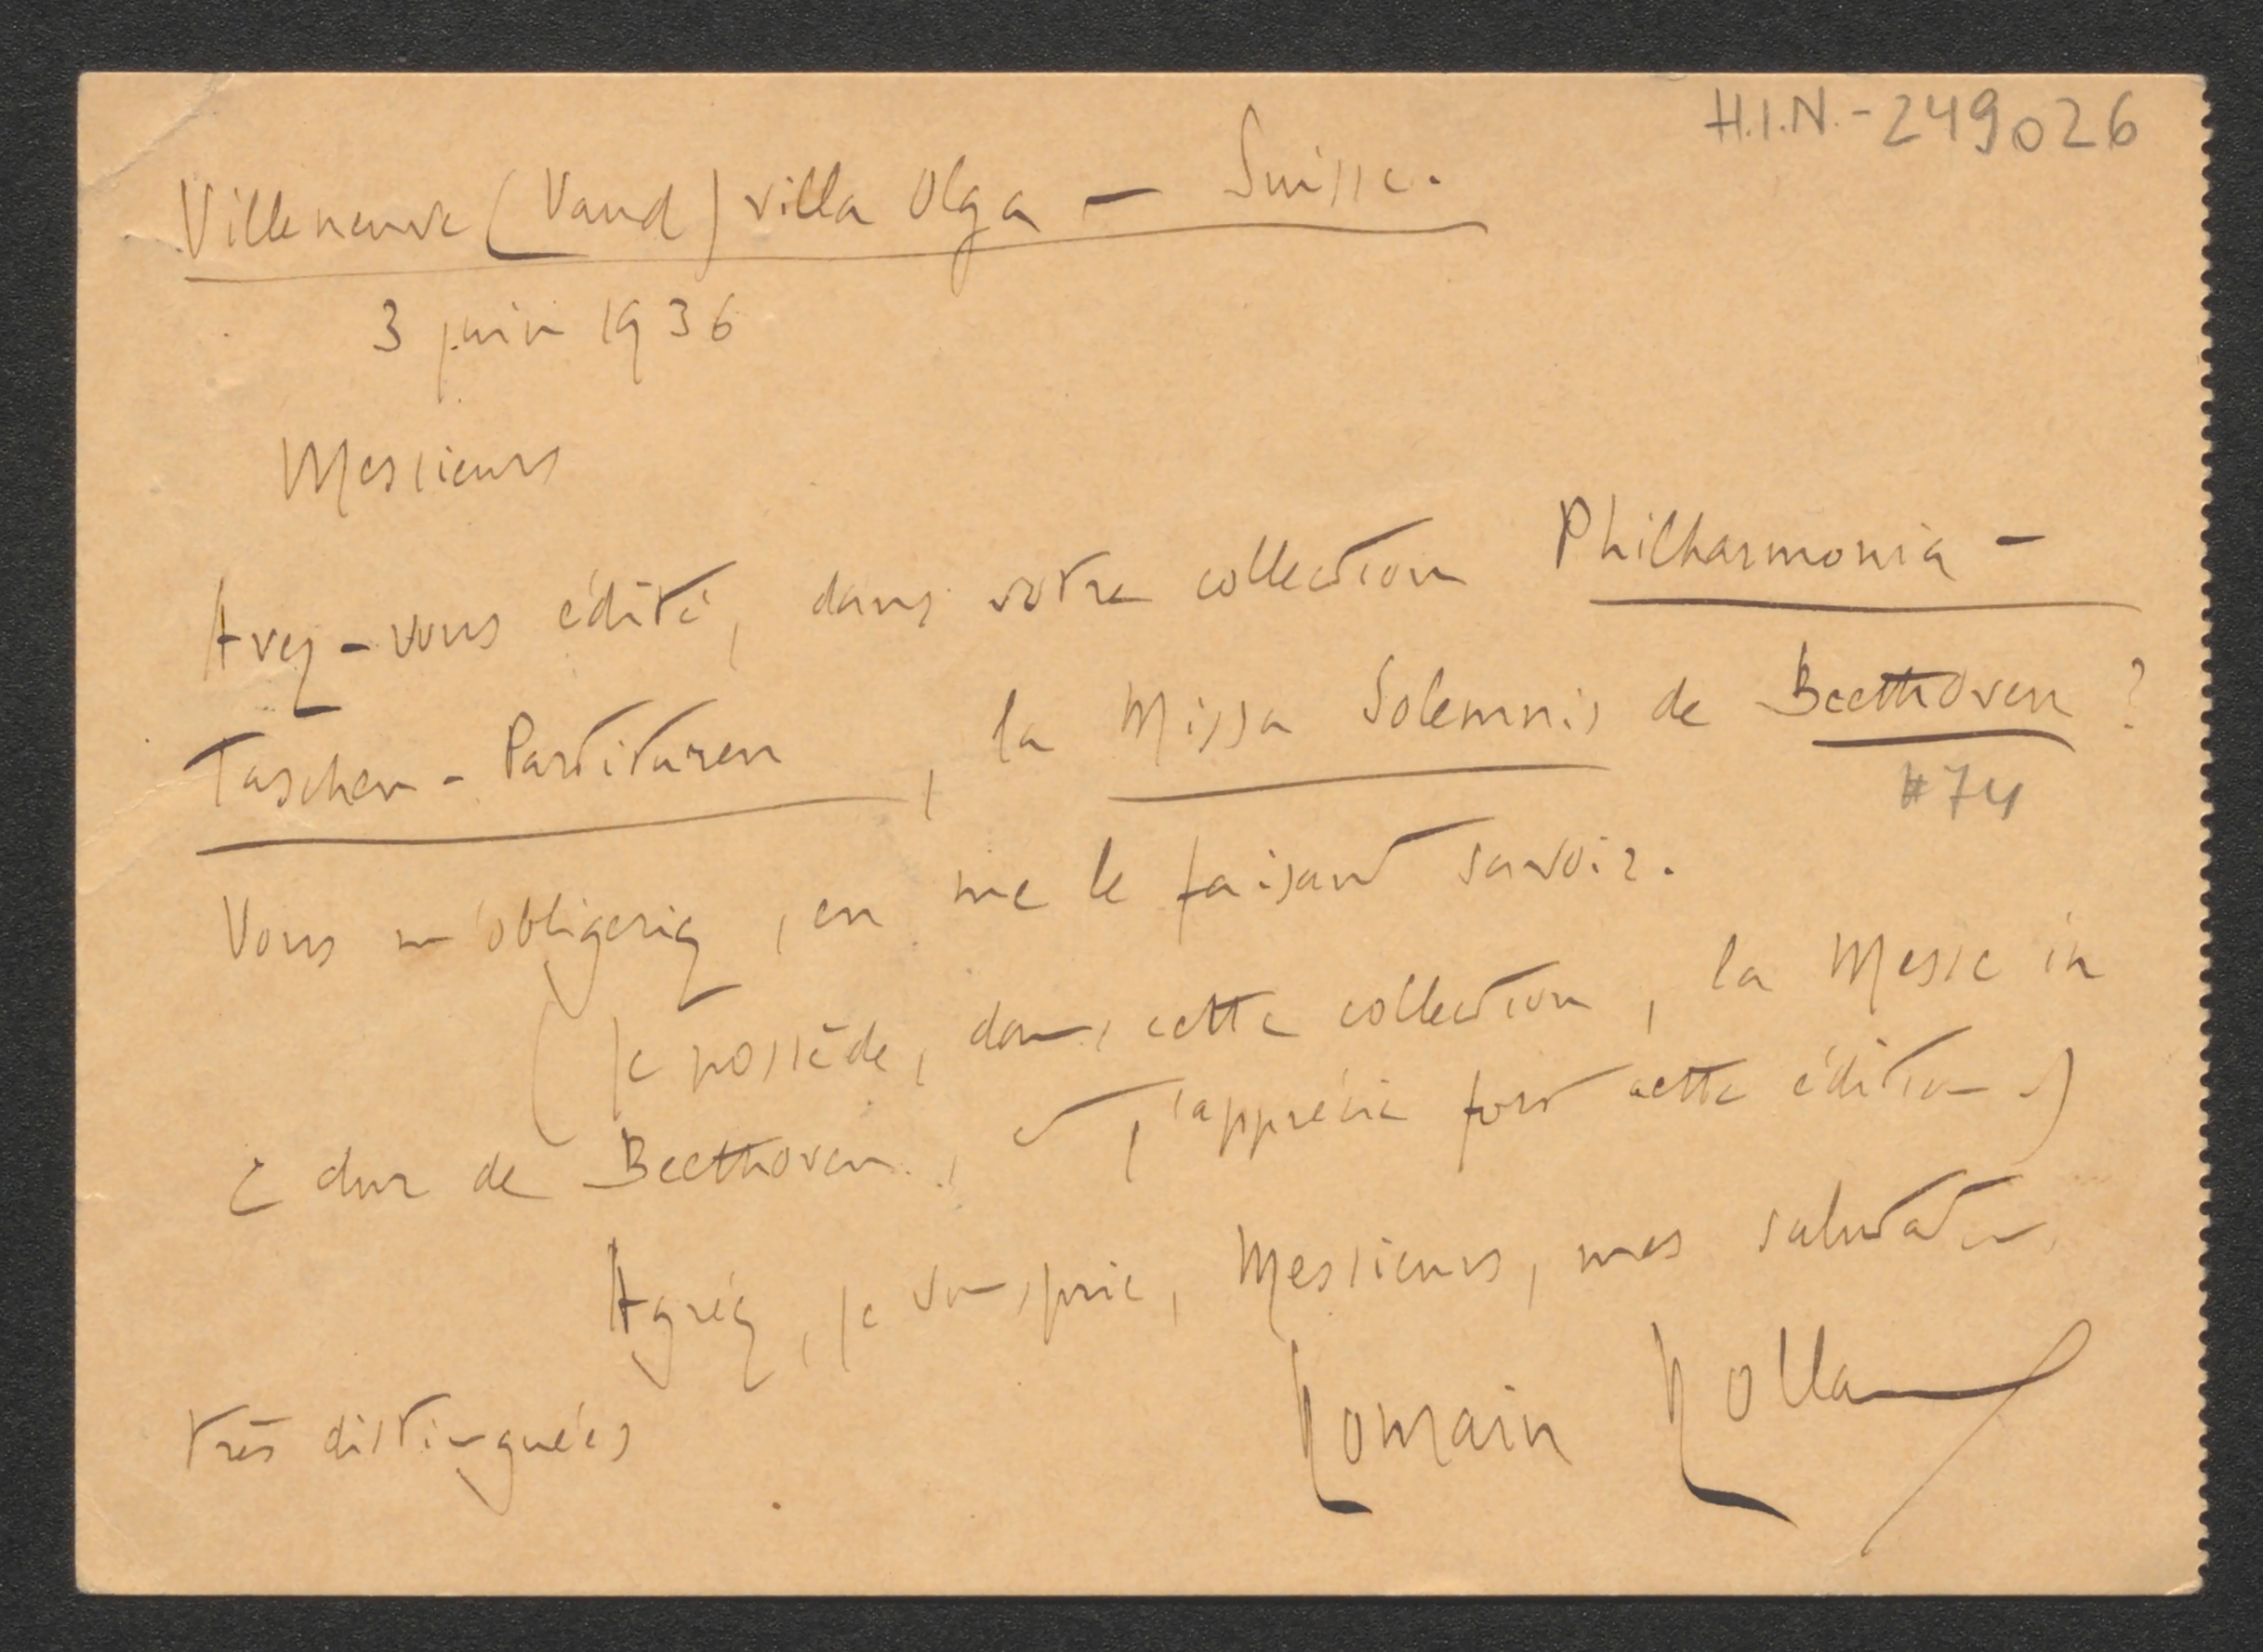 H.I.N.-249026
Villeneuve (Vaud) villa Olga — Suisse.
3 juin 1936
Messieurs
Avez-vous édité, dans votre collection Philharmonia-
Taschen-Partituren, la Missa Solemnis de Beethoven ?
#74
Vous m'obligeriez, en me le faisant savoir.
(Je possède, dans cette collection, la Messe in
C dur de Beethoven, et j'apprécie fort cette édition.)
Agréez, je vous prie, Messieurs, mes salutations
très distinguées
Romain Rolland